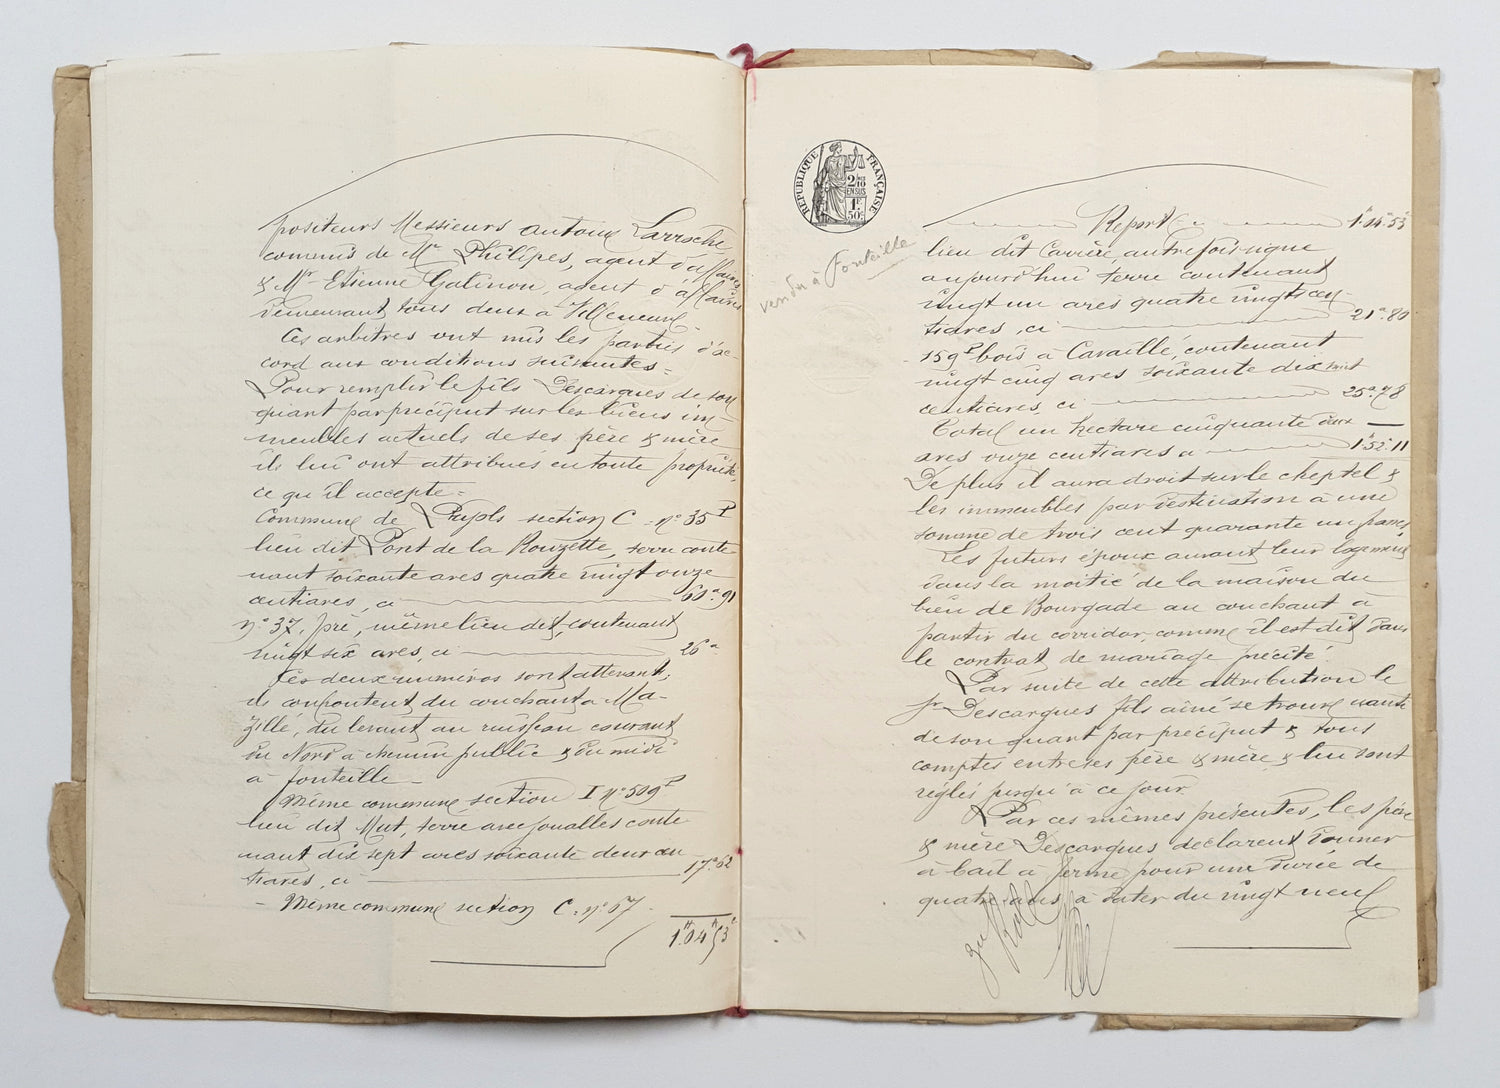 positeurs Messieurs Antoine Larroche,
commis de Mr Philipes, agent d'affaires
& Mr Etienne Galinou, agent d'affaires
demeurant tous deux à Villeneuve.
Ces arbitres ont mis les parties d'ac-
cord aux conditions suivantes =
Pour remplir le fils Descargues de son
quart par préciput sur les biens im-
meubles actuels de ses père & mère
ils lui ont attribués en toute propriété,
ce qu'il accepte =
Commune de section C = n° 35 P
lieu dit Pont de la Rouzette, terre conte
nant soixante ares quatre vingt onze
centiares, ci 60a.91
n° 37, pré, même lieu dit, contenant
vingt six ares, ci 26a
Ces deux numéros sont attenant,
ils confrontent du couchant à Ma-
zillé, du levant au ruisseau courant
du Nord à chemin public & du midi
à Fonteille -
Même commune, section I n° 509 P
lieu dit Mut, terre avec joualles conte
nant dix sept ares soixante deux cen
tiares, ci 17a.62
- Même commune section C = n° 67
1H.04A53c
RÉPUBLIQUE FRANÇAISE
2/10 EN SUS
1F 50c
vendu à Fonteille
Report 1h.04a.53c
lieu dit Carrière, autrefois vigne
aujourd'hui terre contenant
vingt un ares quatre vingts cen-
tiares, ci 21a.80
159 P bois à Cavaillé, contenant
vingt cinq ares soixante dix huit
centiares, ci 25a.78
Total un hectare cinquante deux
ares onze centiares ci 1h52.11
De plus il aura droit sur le cheptel &
les immeubles par destination à une
somme de trois cent quarante un francs,
Les futurs époux auront leur logement
dans la moitié de la maison du
bien de Bourgade au couchant à
partir du corridor, comme il est dit dans
le contrat de mariage précité.
Par suite de cette attribution le
sr Descargues fils aîné se trouve nanti
de son quart par préciput & tous
comptes entre ses père & mère & lui sont
réglés jusqu'à ce jour.
Par ces mêmes présentes, les père
& mère Descargues déclarent donner
à bail à ferme pour une durée de
quatre ans, à dater du vingt neuf